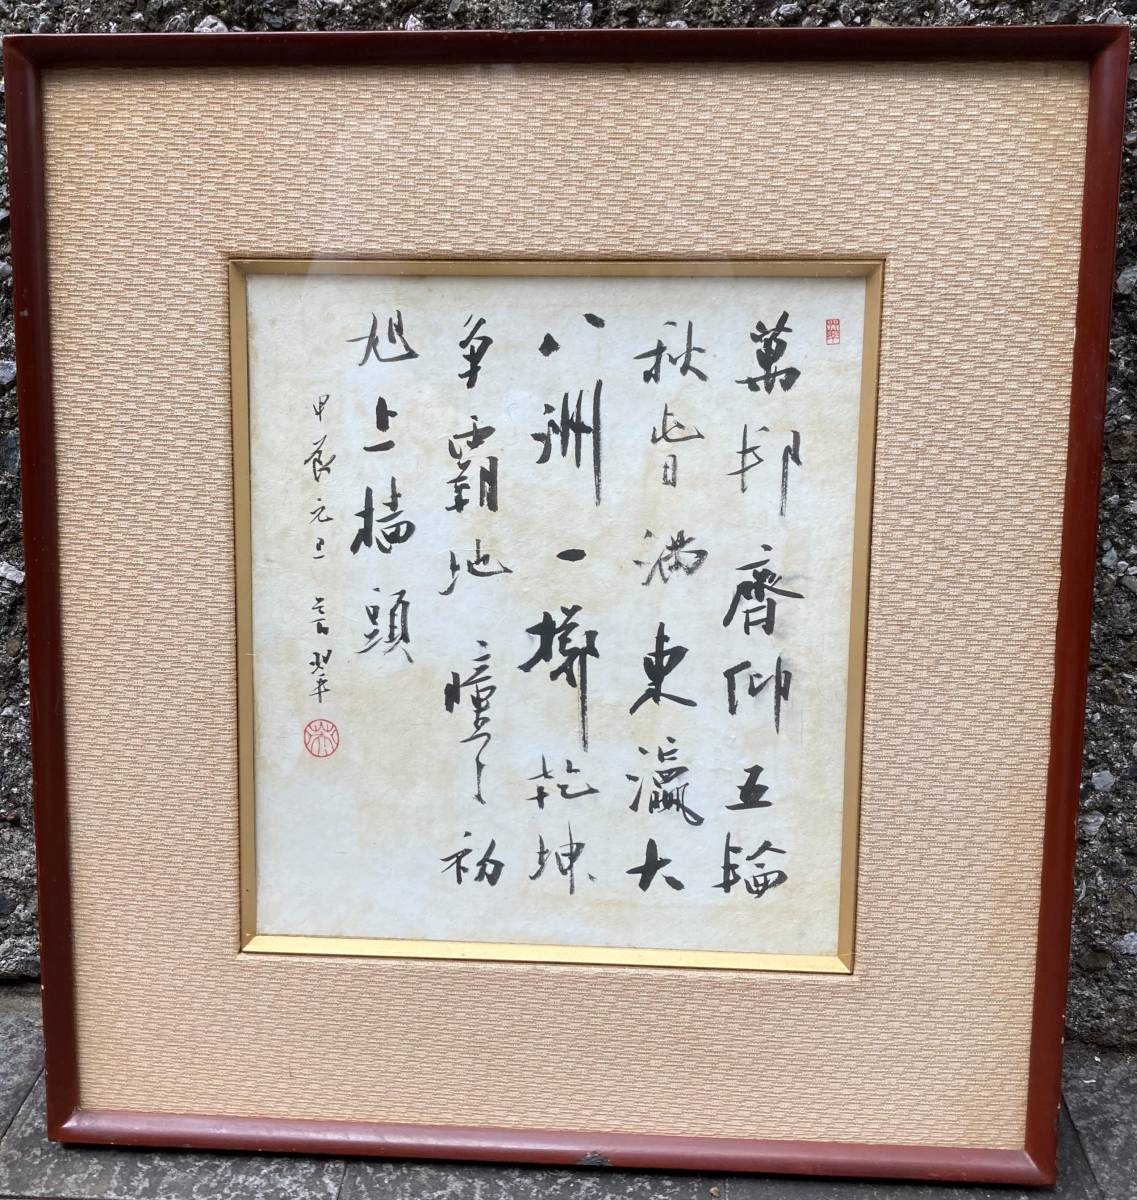 萬邦齊仰五輪
秋此日滿東瀛大
八洲一擲乾坤
争霸地曈々初
旭上檣頭
甲辰元旦